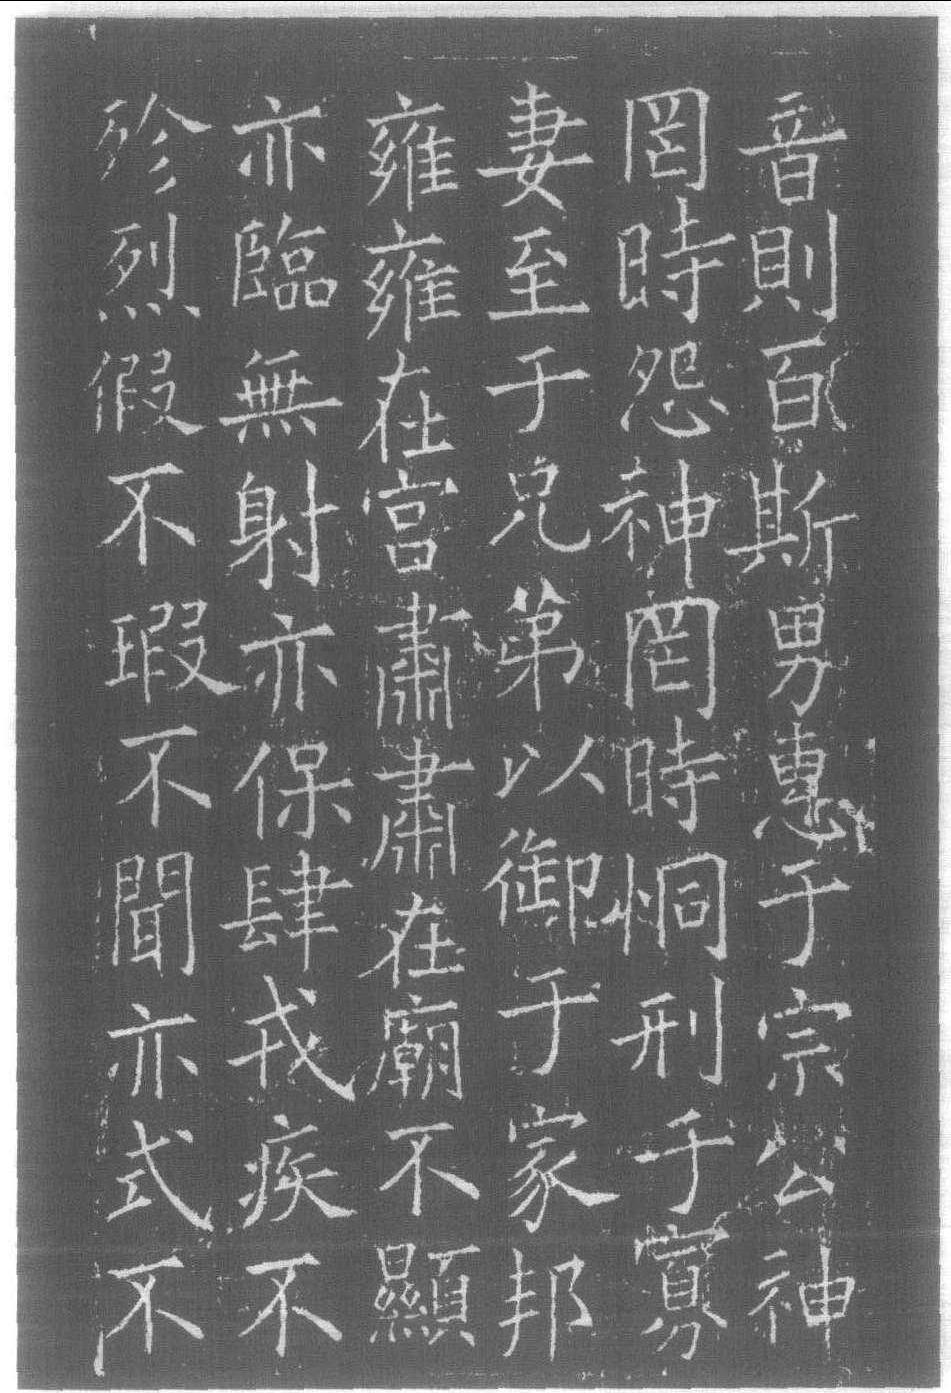 音則百斯男惠于宗公神
罔時怨神罔時恫刑于寡
妻至于兄弟以御于家邦
雍雍在宫肅肅在廟不顯
亦臨無射亦保肆戎疾不
殄烈假不瑕不聞亦式不